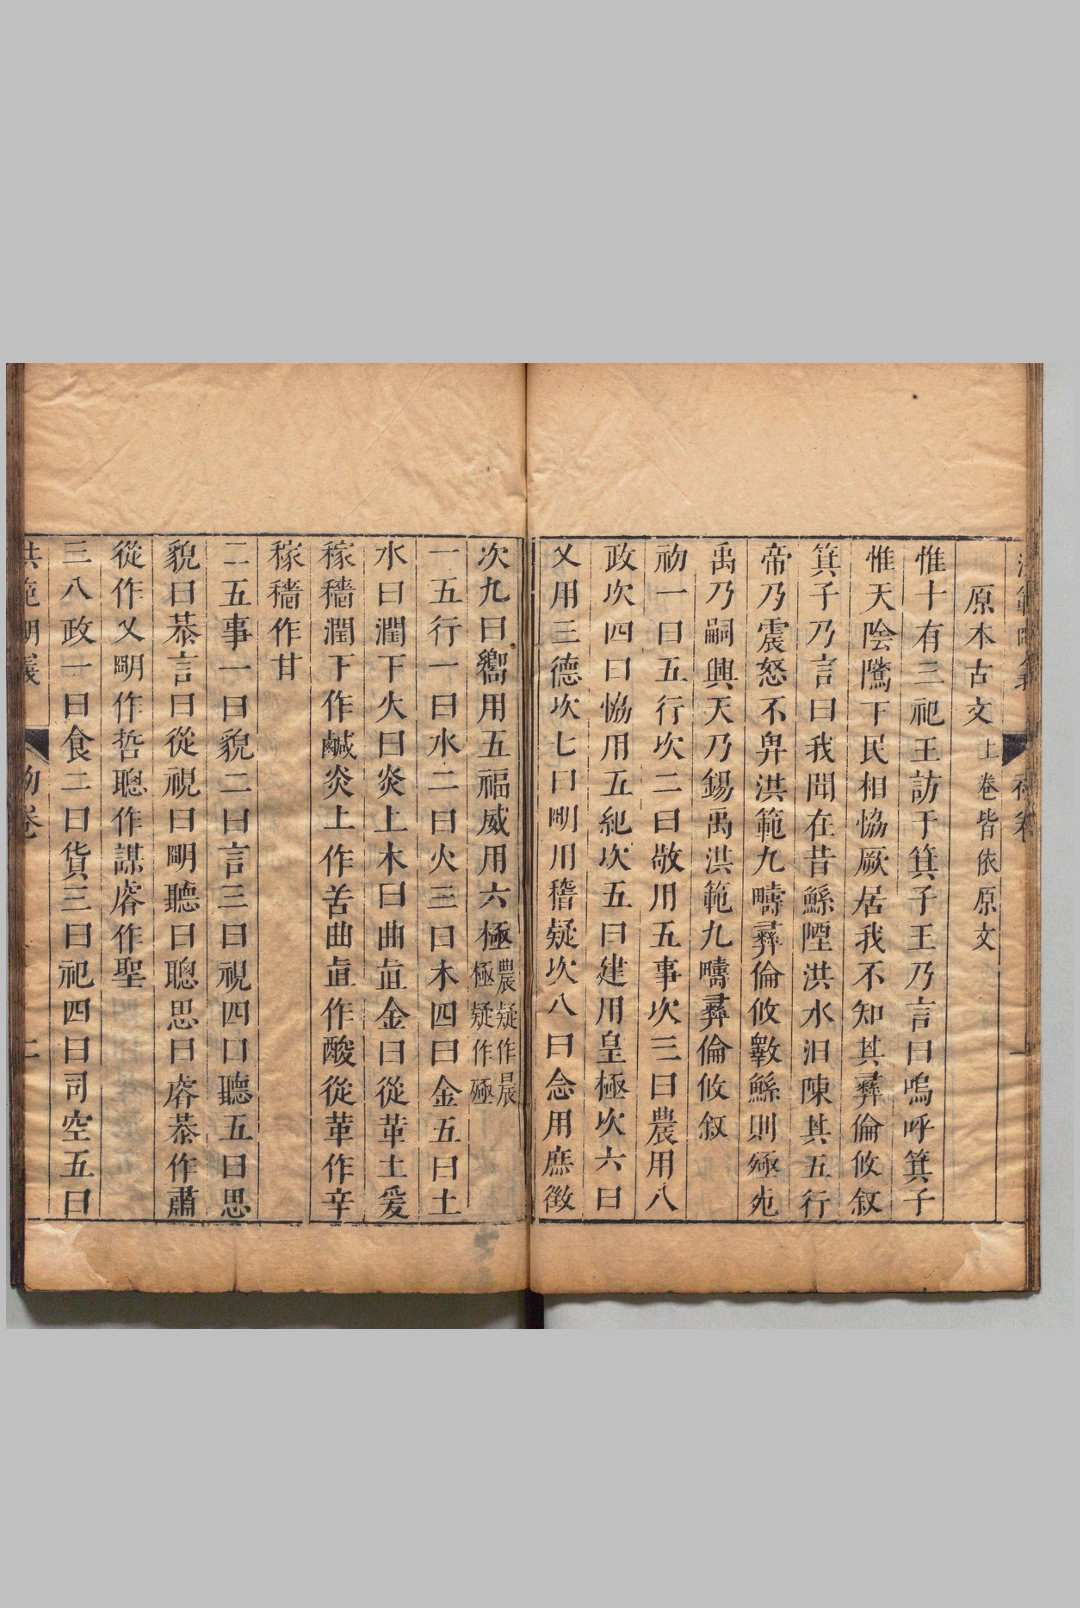 原本古文上卷皆依原文
惟十有三祀王訪于箕子王乃言曰嗚呼箕子
惟天陰騭下民相恊厥居我不知其彞倫攸敘
箕子乃言曰我聞在昔鯀陻洪水汩陳其五行
帝乃震怒不畀洪範九疇彞倫攸斁鯀則殛死
禹乃嗣興天乃錫禹洪範九疇彞倫攸敘
初一曰五行次二曰敬用五事次三曰農用八
政次四曰恊用五紀次五曰建用皇極次六曰
乂用三德次七曰明用稽疑次八曰念用庶徵
次九曰嚮用五福威用六極農疑作晨極疑作殛
一五行一曰水二曰火三曰木四曰金五曰土
水曰潤下火曰炎上木曰曲直金曰從革土爰
稼穡潤下作鹹炎上作苦曲直作酸從革作辛
稼穡作甘
二五事一曰貌二曰言三曰視四曰聽五曰思
貌曰恭言曰從視曰明聽曰聰思曰睿恭作肅
從作乂明作哲聰作謀睿作聖
三八政一曰食二曰貨三曰祀四曰司空五曰
洪範明義
初卷
二